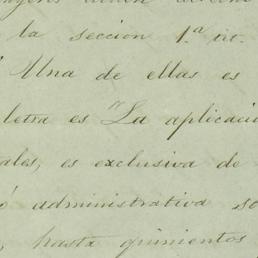 la seccion 1.ª
Una de ellas es
letra es "La aplicació
ales, es exclusiva de
ó administrativa
hasta quinientos